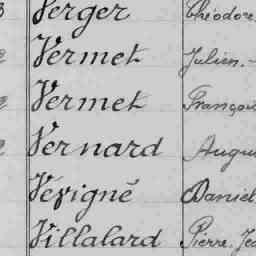 Verger Théodore
Vermet Julien.
Vermet François
Vernard Augu
Vévigné Daniel
Villalard Pierre. Jea